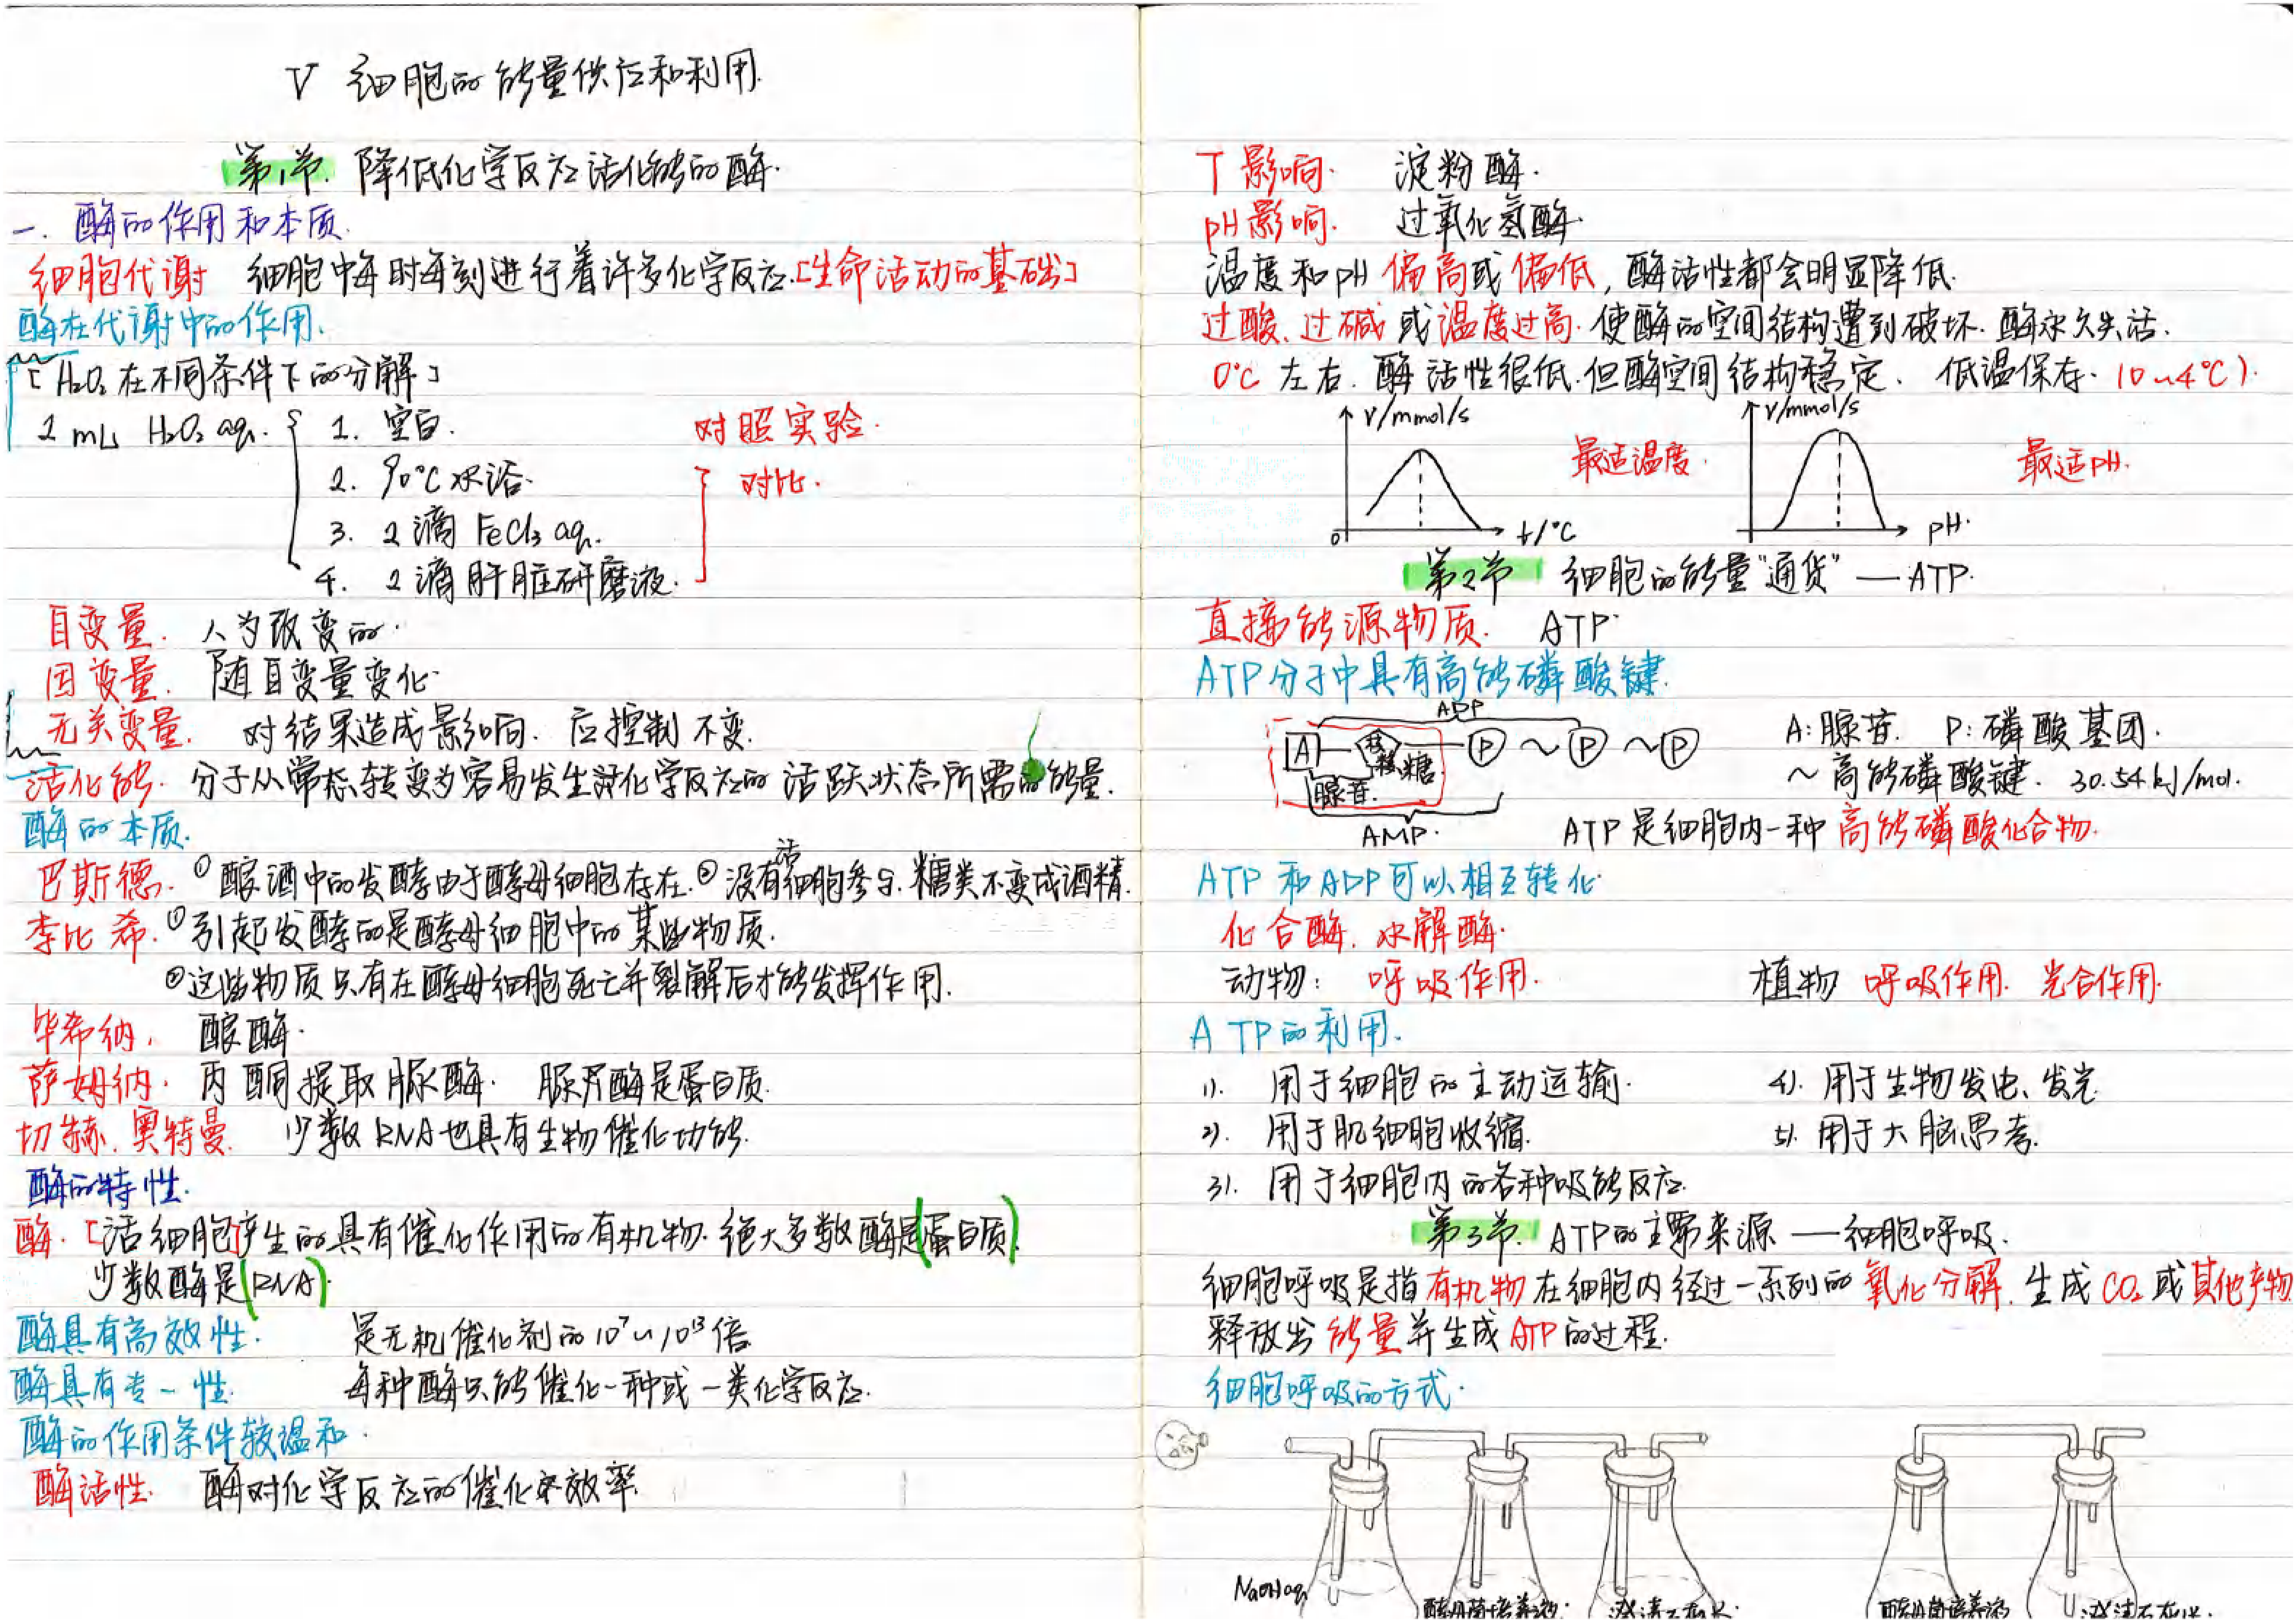 V 细胞的能量供应和利用.
第1节. 降低化学反应活化能的酶.
一. 酶的作用和本质.
细胞代谢 细胞中每时每刻进行着许多化学反应.[生命活动的基础]
酶在代谢中的作用.
[H₂O₂在不同条件下的分解]
2 mL H₂O₂ aq.
1. 空白.
对照实验.
2. 90°C水浴.
对比.
3. 2滴 FeCl₃ aq.
4. 2滴肝脏研磨液.
自变量. 人为改变的.
因变量. 随自变量变化.
无关变量. 对结果造成影响. 应控制不变.
活化能. 分子从常态转变为容易发生化学反应的活跃状态所需的能量.
酶的本质.
巴斯德. ①酿酒中的发酵由于酵母细胞存在.②没有活细胞参与.糖类不变成酒精.
李比希. ①引起发酵的是酵母细胞中的某些物质.
②这些物质只有在酵母细胞死亡并裂解后才能发挥作用.
毕希纳. 酿酶.
萨姆纳. 丙酮提取脲酶. 脲酶是蛋白质.
切赫、奥特曼. 少数RNA也具有生物催化功能.
酶的特性.
酶.[活细胞产生的具有催化作用的有机物.绝大多数酶是(蛋白质).
少数酶是(RNA).
酶具有高效性. 是无机催化剂的10⁷~10¹³倍
酶具有专一性. 每种酶只能催化一种或一类化学反应.
酶的作用条件较温和.
酶活性. 酶对化学反应的催化效率.
T影响. 淀粉酶.
pH影响. 过氧化氢酶.
温度和pH偏高或偏低,酶活性都会明显降低.
过酸、过碱或温度过高.使酶的空间结构遭到破坏.酶永久失活.
0°C左右.酶活性很低.但酶空间结构稳定. 低温保存. (0~4°C).
V/mmol/s
最适温度.
0
t/°C
V/mmol/s
最适pH.
pH.
第2节 细胞的能量"通货"—ATP.
直接能源物质. ATP.
ATP分子中具有高能磷酸键.
ADP
A 核糖 P ~ P ~ P
腺苷.
AMP.
A:腺苷. P:磷酸基团.
~高能磷酸键. 30.54kJ/mol.
ATP是细胞内一种高能磷酸化合物.
ATP和ADP可以相互转化.
化合酶.水解酶.
动物: 呼吸作用. 植物 呼吸作用. 光合作用.
ATP的利用.
1). 用于细胞的主动运输.
4). 用于生物发电、发光.
2). 用于肌细胞收缩.
5). 用于大脑思考.
3). 用于细胞内的各种吸能反应.
第3节. ATP的主要来源—细胞呼吸.
细胞呼吸是指有机物在细胞内经过一系列的氧化分解.生成CO₂或其他产物
释放出能量并生成ATP的过程.
细胞呼吸的方式.
NaOHaq 酵母菌培养液. 澄清石灰水. 酵母菌培养液 澄清石灰水.